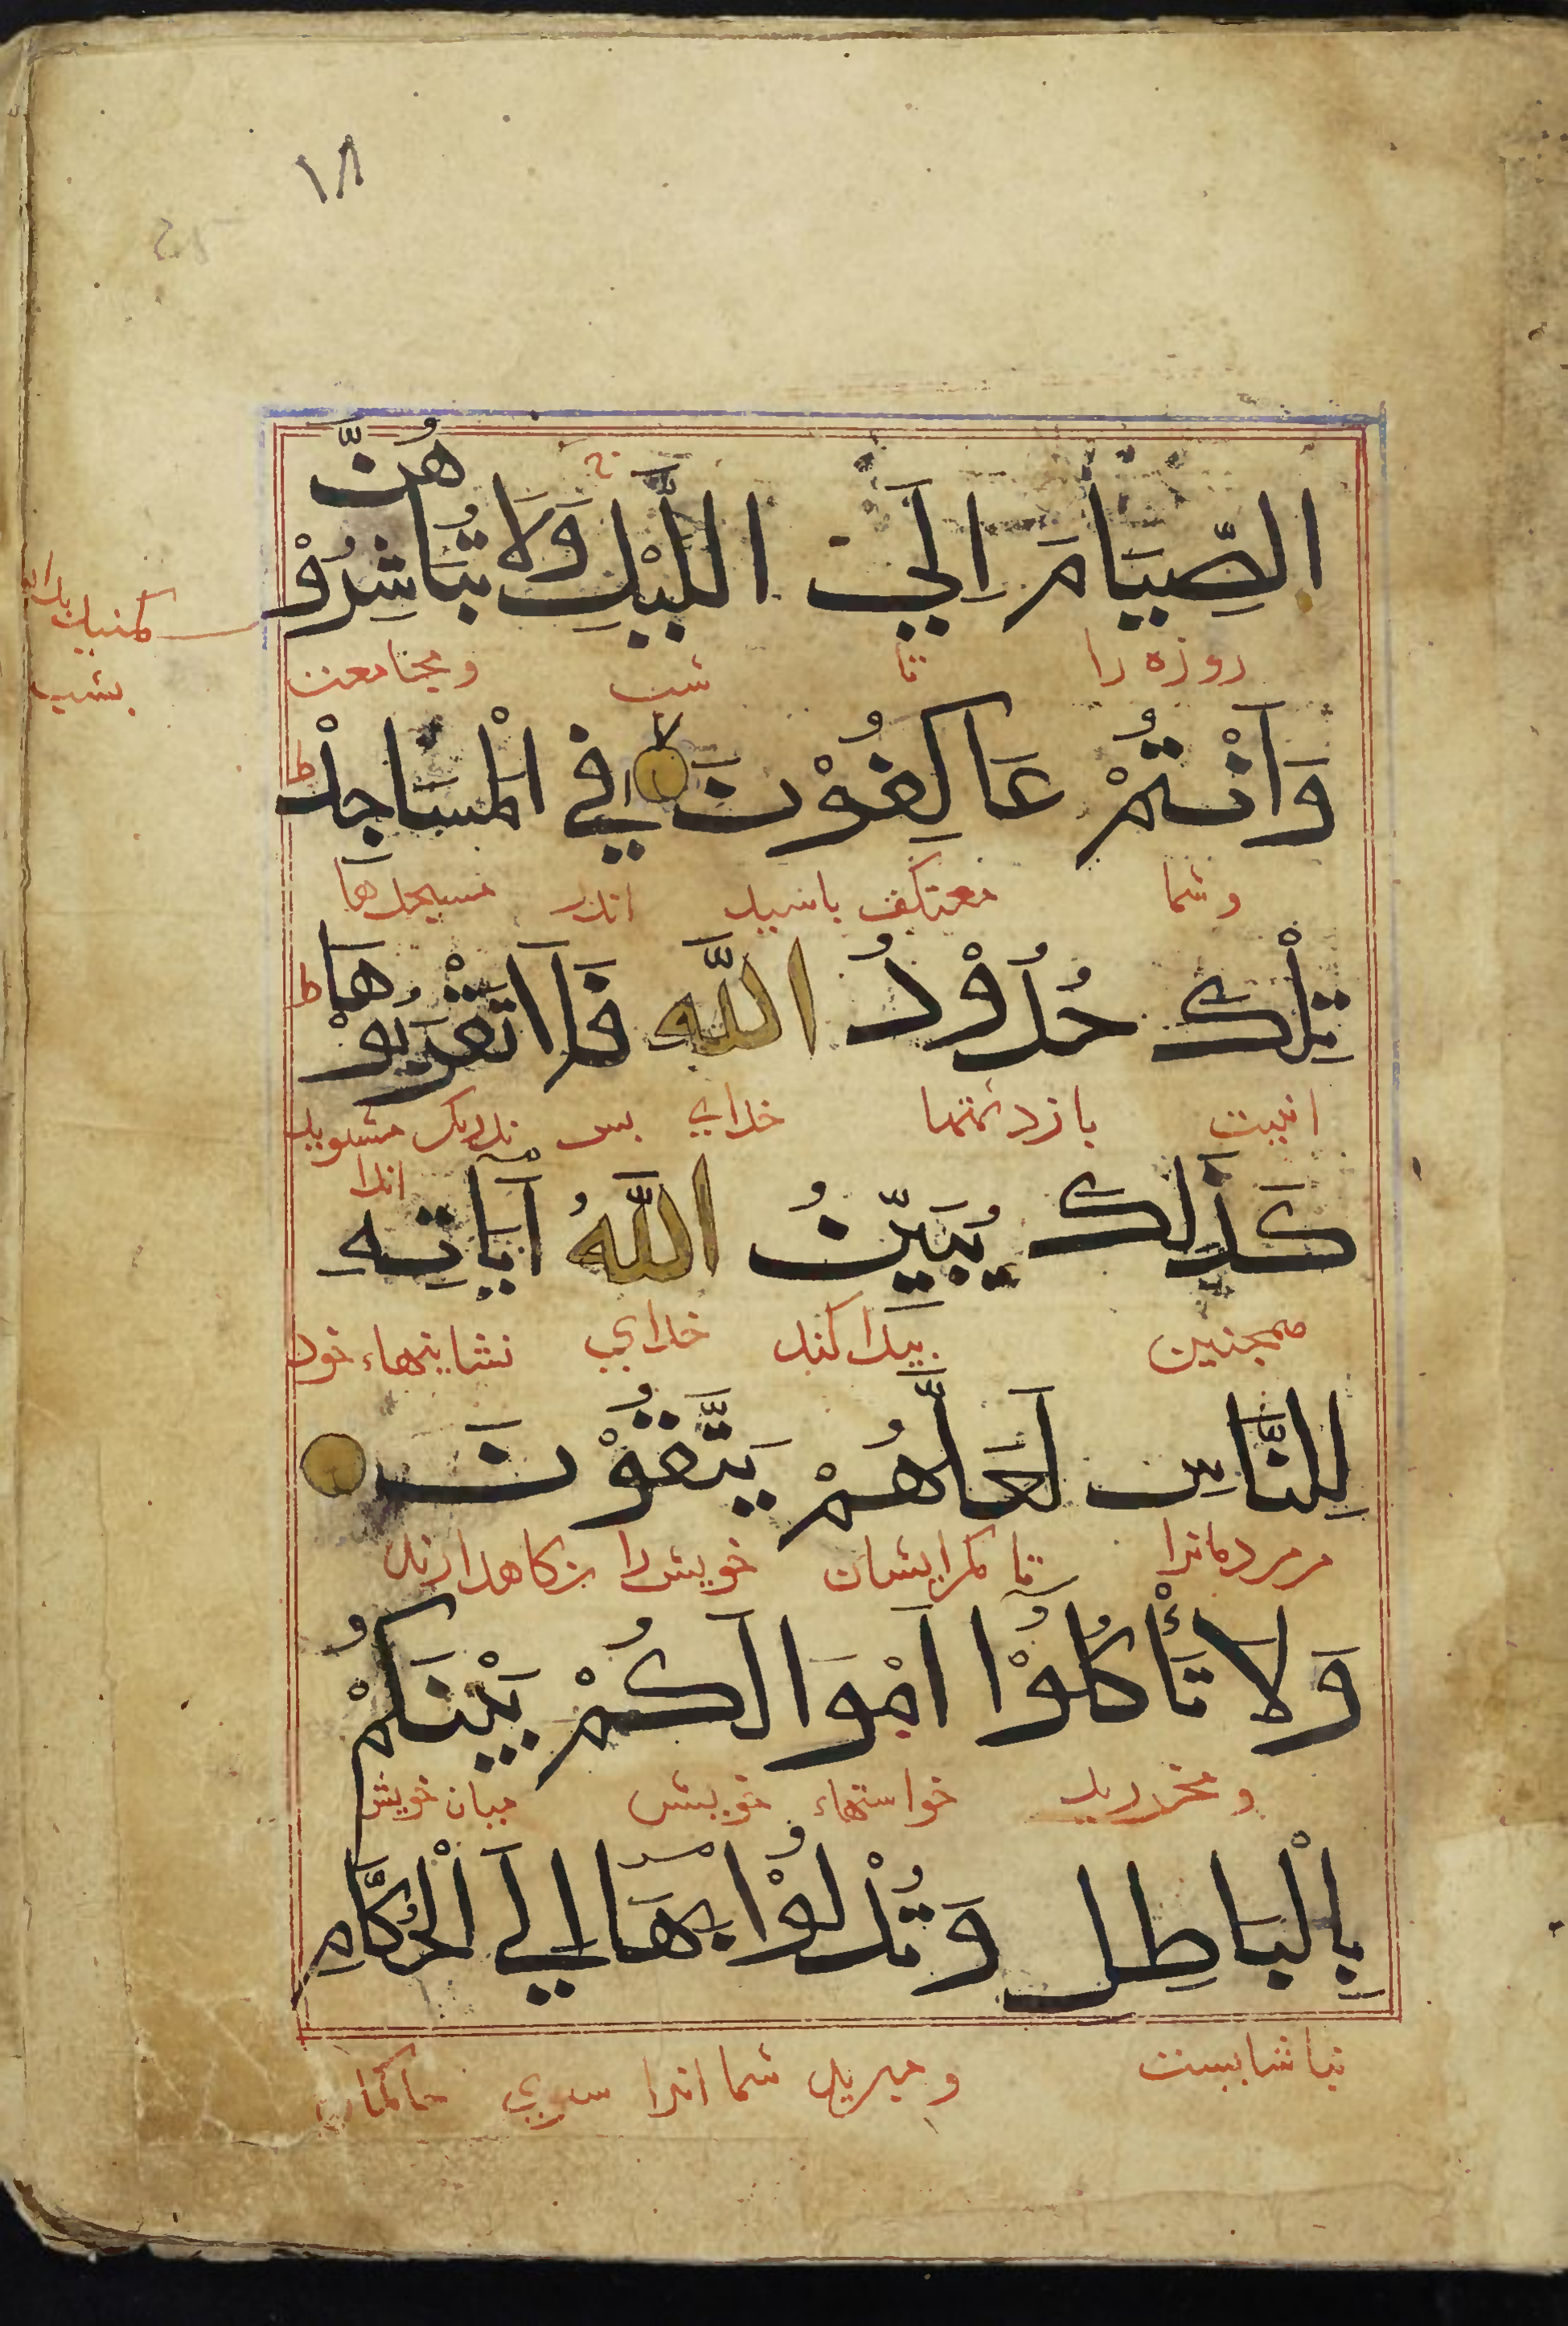 ١٨
الصِّيَامَ اِلَي اللَّيْلِ وَلَا تُبَاشِرُوْهُنَّ
روزه را تا شب و مجامعت
مكنيد
بشب
وَاَنْتُمْ عَاكِفُوْنَ فِي الْمَسَاجِدْ ط
وشما معتكف باشيد اندر مسجدها
تِلْكَ حُدُوْدُ اللّٰهِ فَلَا تَقْرَبُوْهَا ط
اينست بازدشتها خداي بس نزديك مشويد
انرا
كَذٰلِكَ يُبَيِّنُ اللّٰهُ آيَاتِهِ
همجنين بيدا كند خداي نشانيهاء خود
لِلنَّاسِ لَعَلَّهُمْ يَتَّقُوْنَ
مر مردمانرا تا مكر ايشان خويش را نكاهدارند
وَلَا تَأْكُلُوْٓا اَمْوَالَكُمْ بَيْنَكُمْ
و مخوريد خواستهاء خويش ميان خويش
بِالْبَاطِلِ وَتُدْلُوْا بِهَا اِلَي الْحُكَّامِ
بناشايست و مبريد شما انرا سوي حاكمان